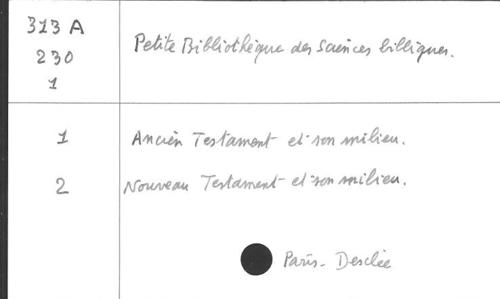 313 A
230
1
Petite Bibliothèque des Sciences bibliques.
1 Ancien Testament et son milieu.
2 Nouveau Testament et son milieu.
Paris - Desclée